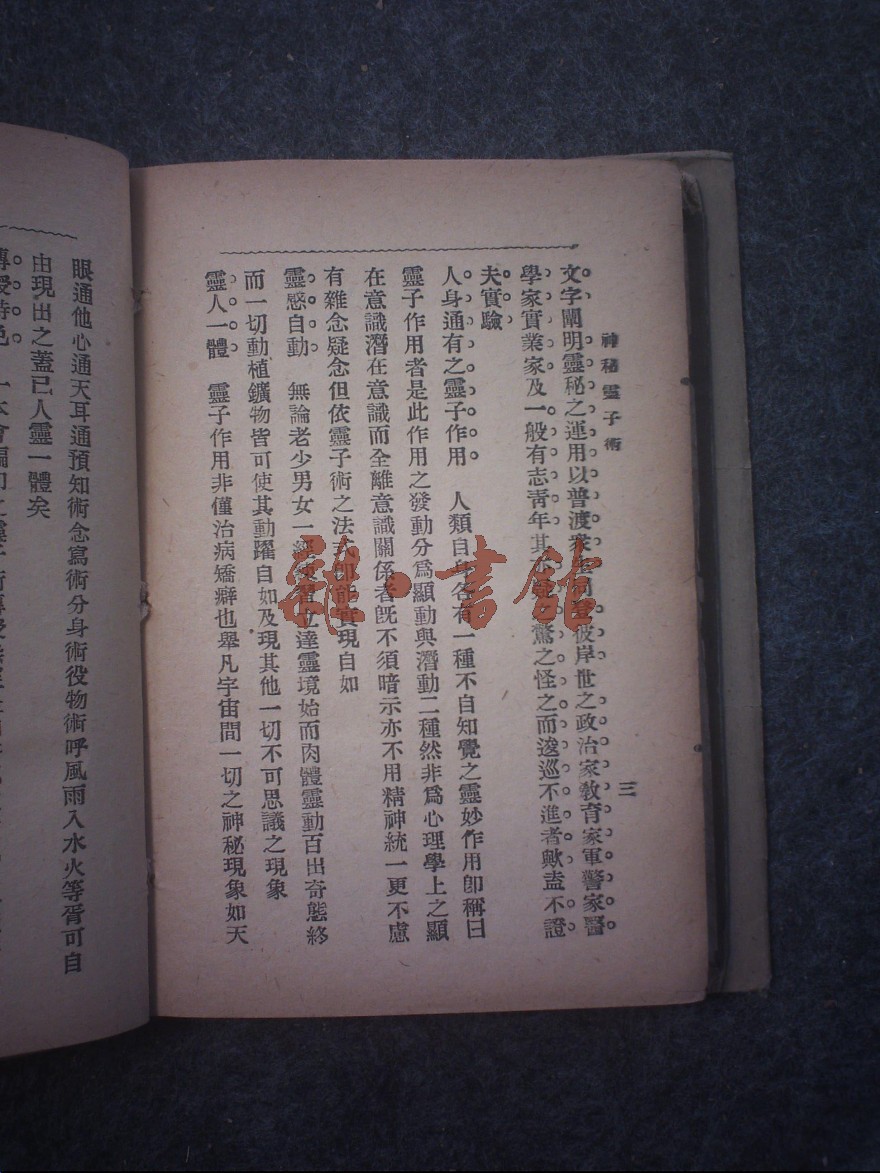 神秘靈子術
三
文字闡明靈秘之運用以普渡衆生同登彼岸世之政治家教育家軍警家醫
學家實業家及一般有志青年其亦疑之驚之怪之而逡巡不進者歟盍不證
夫實驗
人身通有之靈子作用 人類自身各有一種不自知覺之靈妙作用卽稱曰
靈子作用者是此作用之發動分爲顯動與潛動二種然非爲心理學上之顯
在意識潛在意識而全離意識關係者旣不須暗示亦不用精神統一更不慮
有雜念疑念但依靈子術之法式卽能實現自如
靈感自動 無論老少男女一經練習立達靈境始而肉體靈動百出奇態終
而一切動植鑛物皆可使其動躍自如及現其他一切不可思議之現象
靈人一體 靈子作用非僅治病矯癖也舉凡宇宙間一切之神秘現象如天
眼通他心通天耳通預知術念寫術分身術役物術呼風雨入水火等胥可自
由現出之蓋已人靈一體矣
書館